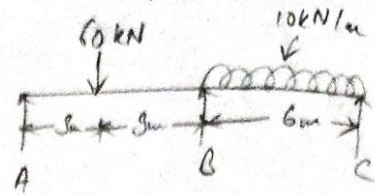 60kN
10kN/m
3m
3m
6m
A
B
C